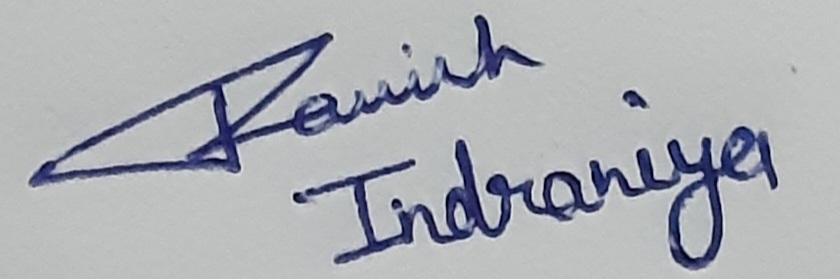 Kanish
Indraniya